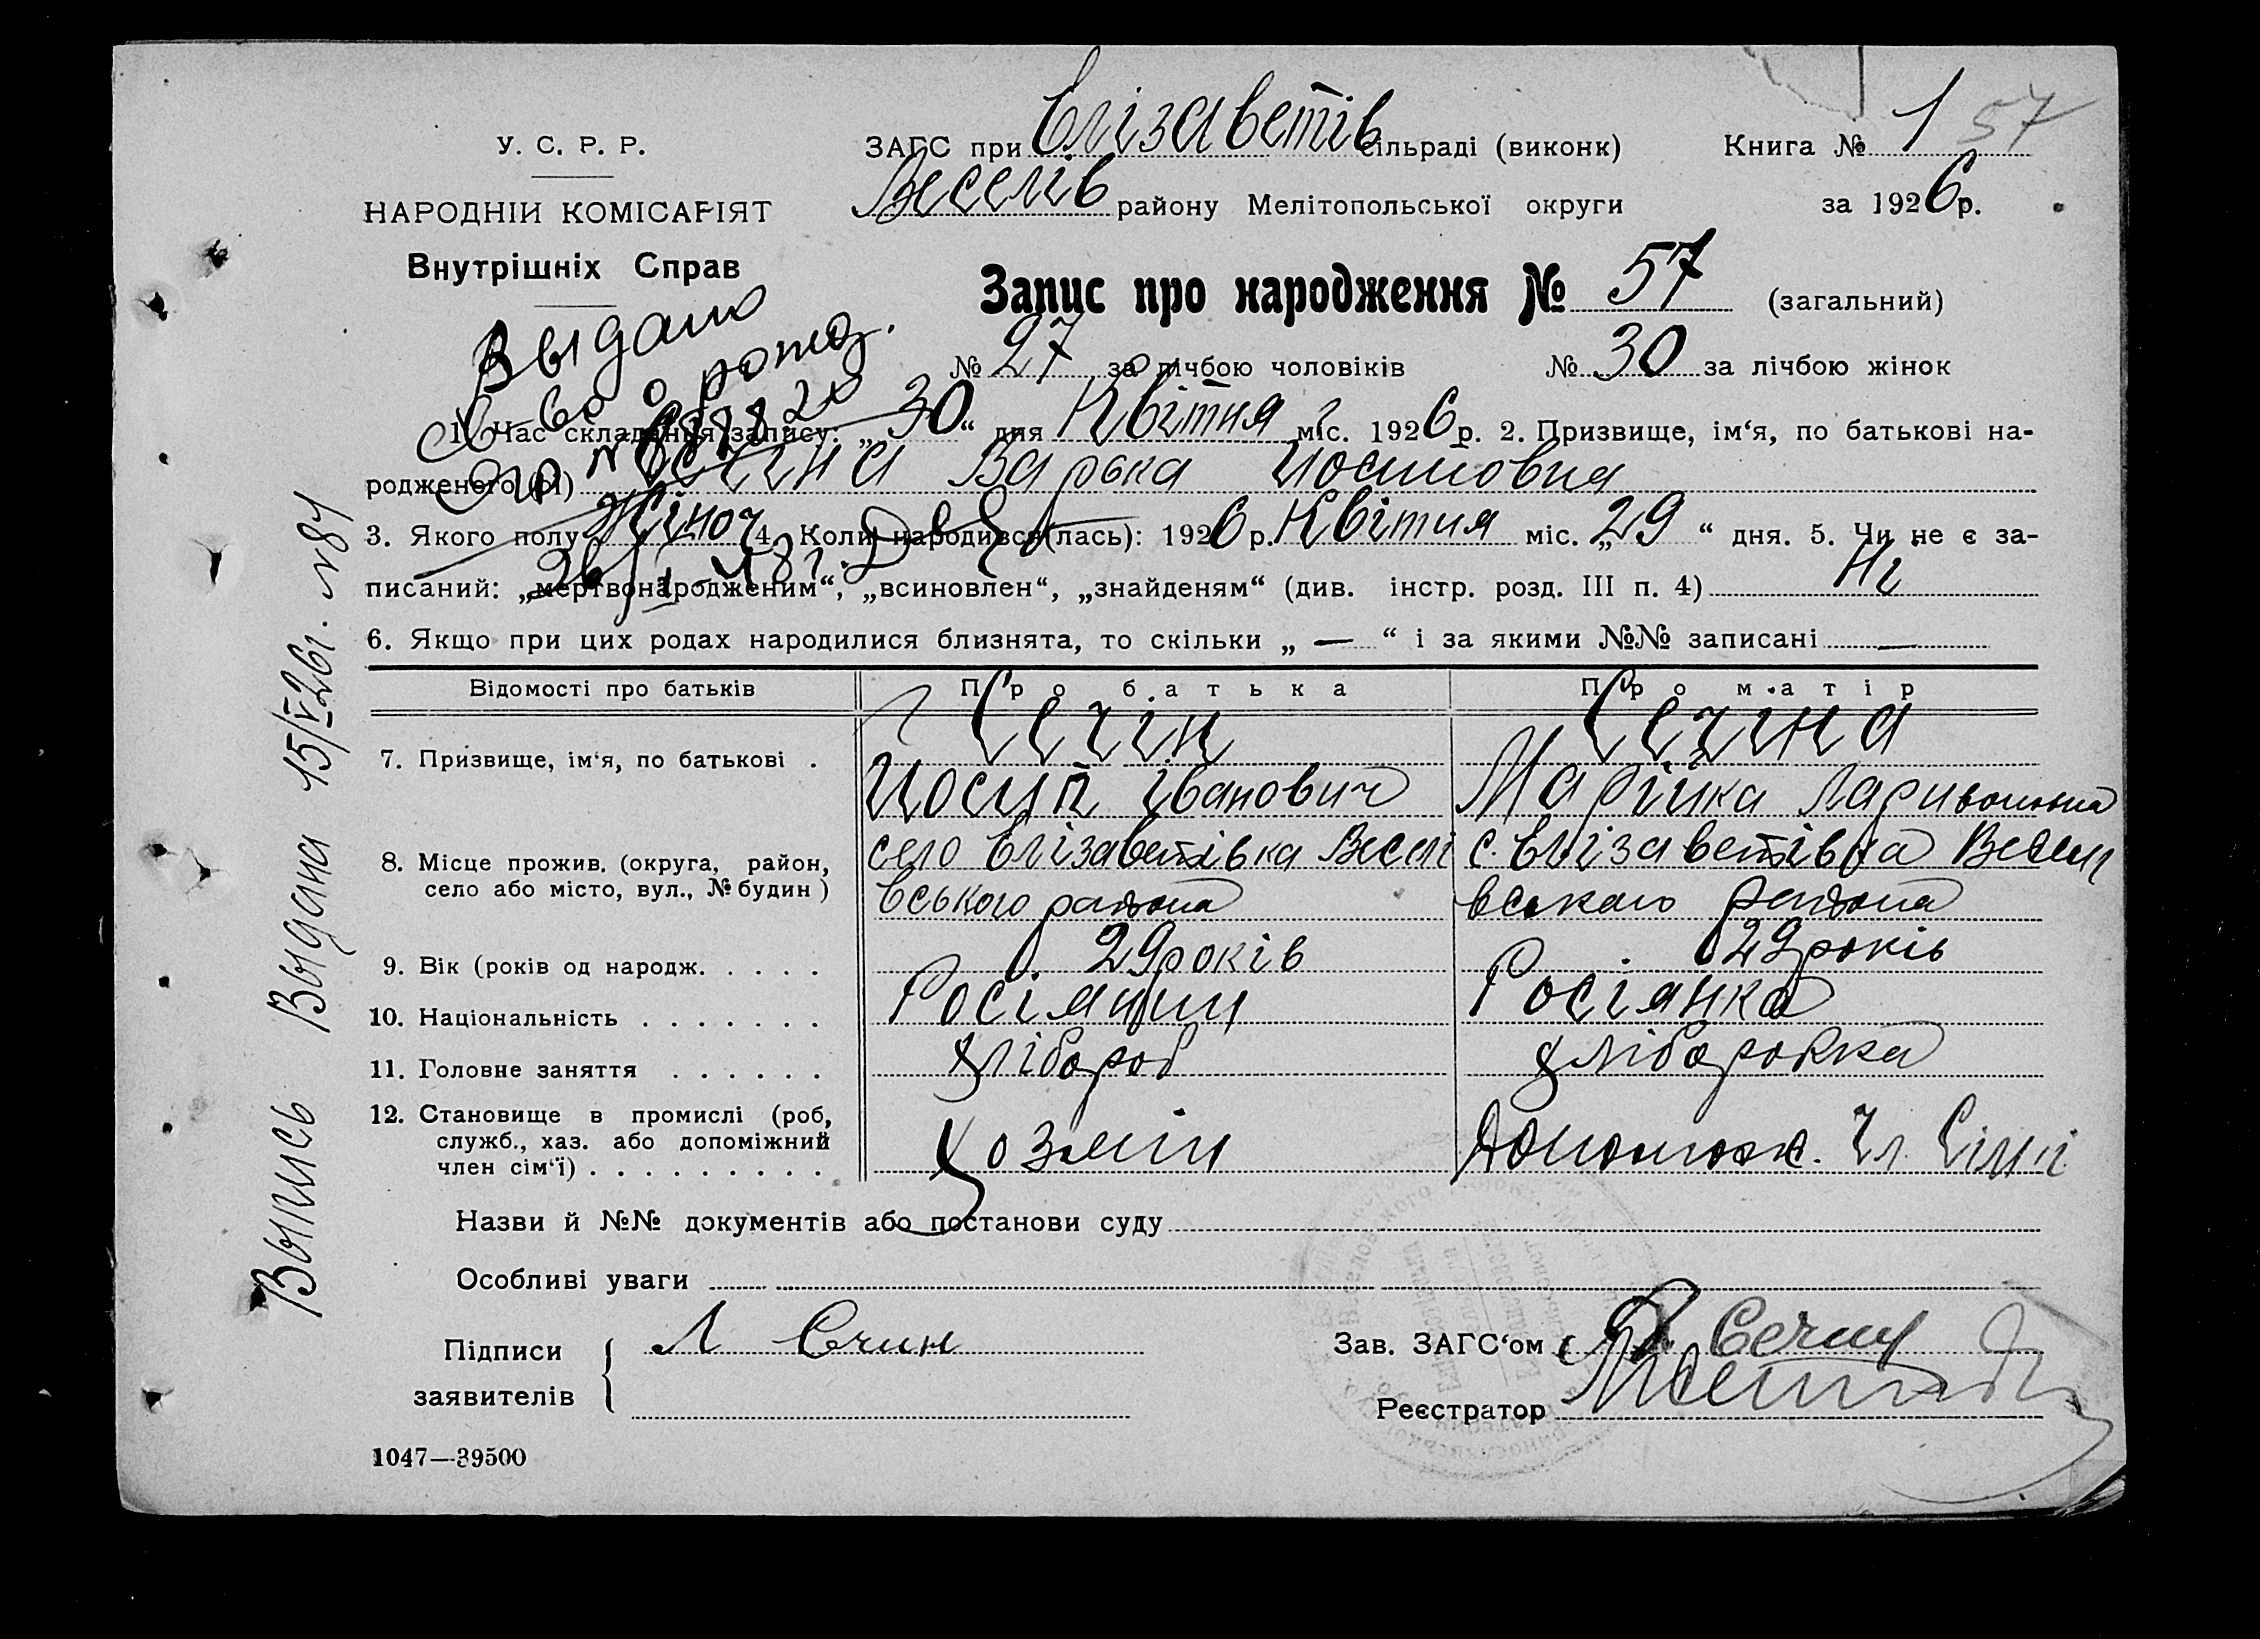 У. С. Р. Р.
НАРОДНІЙ КОМІСАРІЯТ
Внутрішніх Справ
ЗАГС при Єлізаветів сільраді (виконк) Книга № 1 57
Веселів району Мелітопольської округи за 1926 р.
Запис про народження № 57 (загальний)
№ 27 за лічбою чоловіків № 30 за лічбою жінок
Выдано
св-во о рожд.
1. Час складання запису: „30“ дня Квітня міс. 1926 р. 2. Призвище, ім‘я, по батькові на-
родженого (ої) Сечина Варька Иосиповна
3. Якого полу Жіноч 4. Коли народився(лась): 1926 р. Квітня міс. „29“ дня. 5. Чи не є за-
писаний: „мертвонародженим“, „всиновлен“, „знайденям“ (див. інстр. розд. III п. 4) Ні
6. Якщо при цих родах народилися близнята, то скільки „ — “ і за якими №№ записані —
Відомості про батьків Про батька Про матір
7. Призвище, ім‘я, по батькові . Сечін Сечина
Иосип Іванович Марійка Ларивоновна
8. Місце прожив. (округа, район, село Єлізаветівка Веселі с. Єлізаветівка Весели
село або місто, вул., № будин) вського района вськаго района
9. Вік (років од народж. . . . . 29 років 29 років
10. Національність . . . . . . . Росіянин Росіянка
11. Головне заняття . . . . . . хлібороб хліборобка
12. Становище в промислі (роб,
служб., хаз. або допоміжний хозяин Допомож. Чл. Сімї
член сім‘ї) . . . . . . . . .
Назви й №№ документів або постанови суду
Особливі уваги
Підписи заявителів Сечин
Зав. ЗАГС‘ом Сечин
Реєстратор
1047—39500
Выпись Выдана 15/V 26 г. № 84